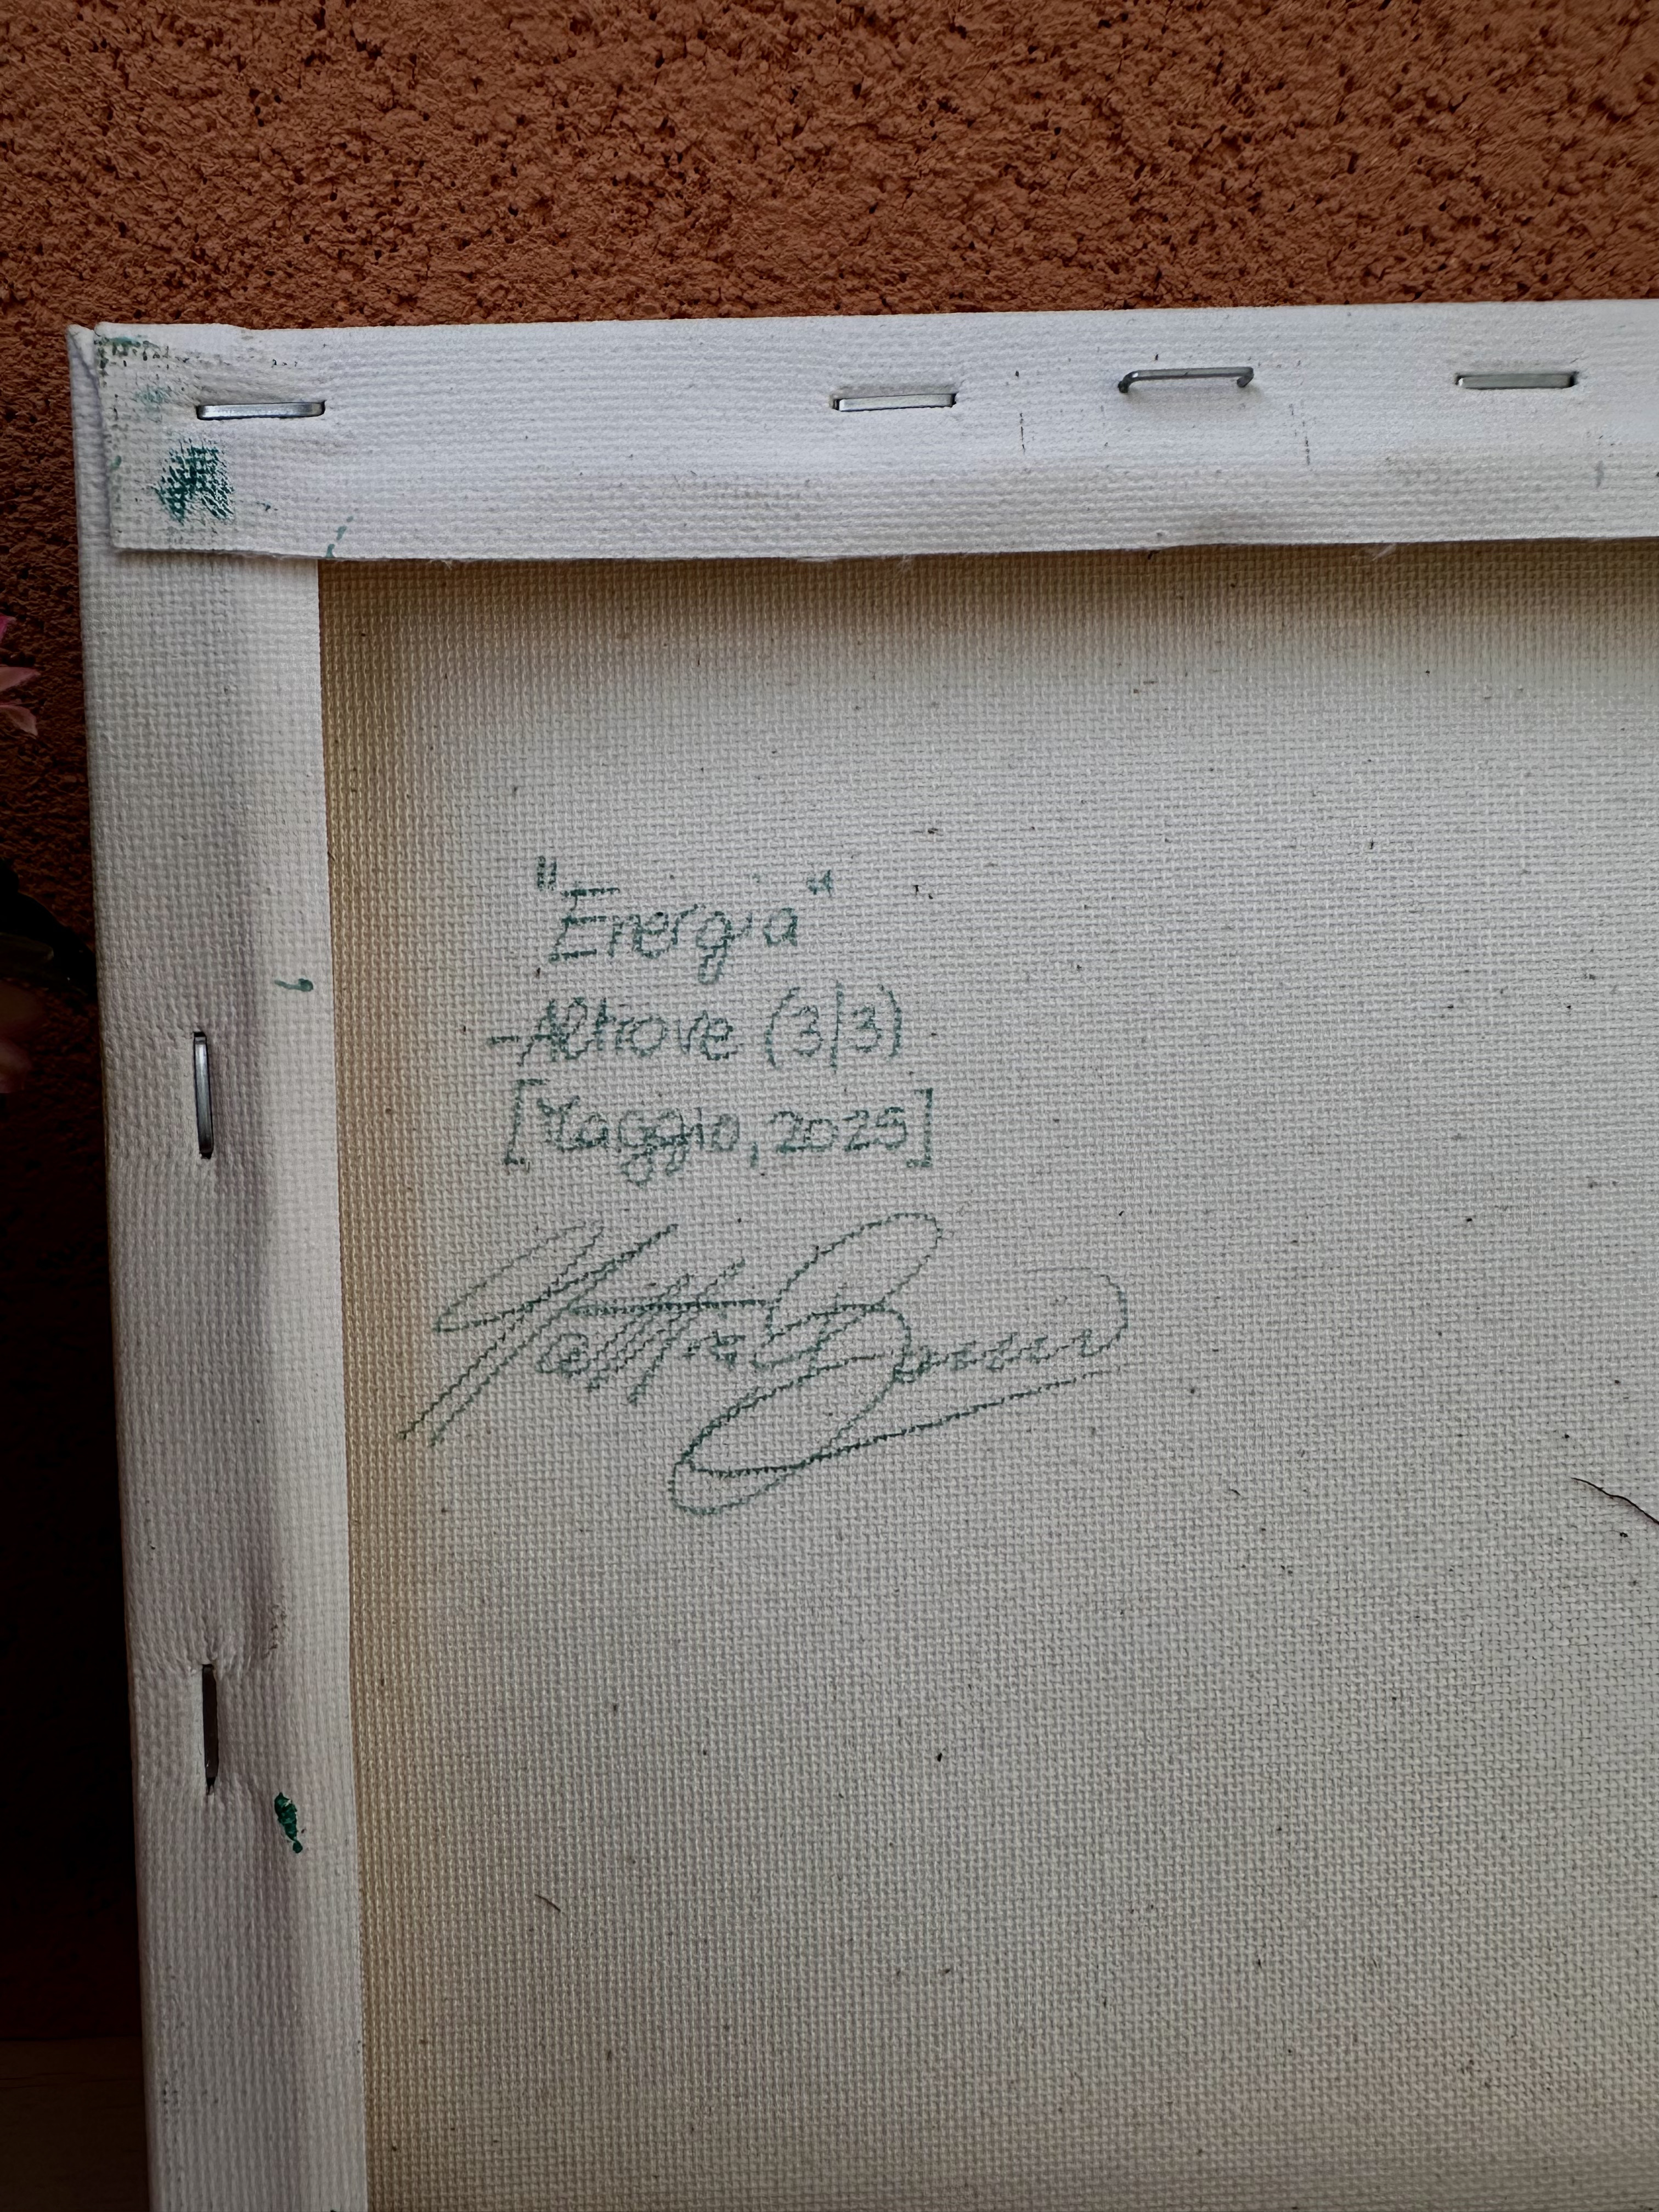 "Energia"
-Altrove (3|3)
[Maggio, 2025]